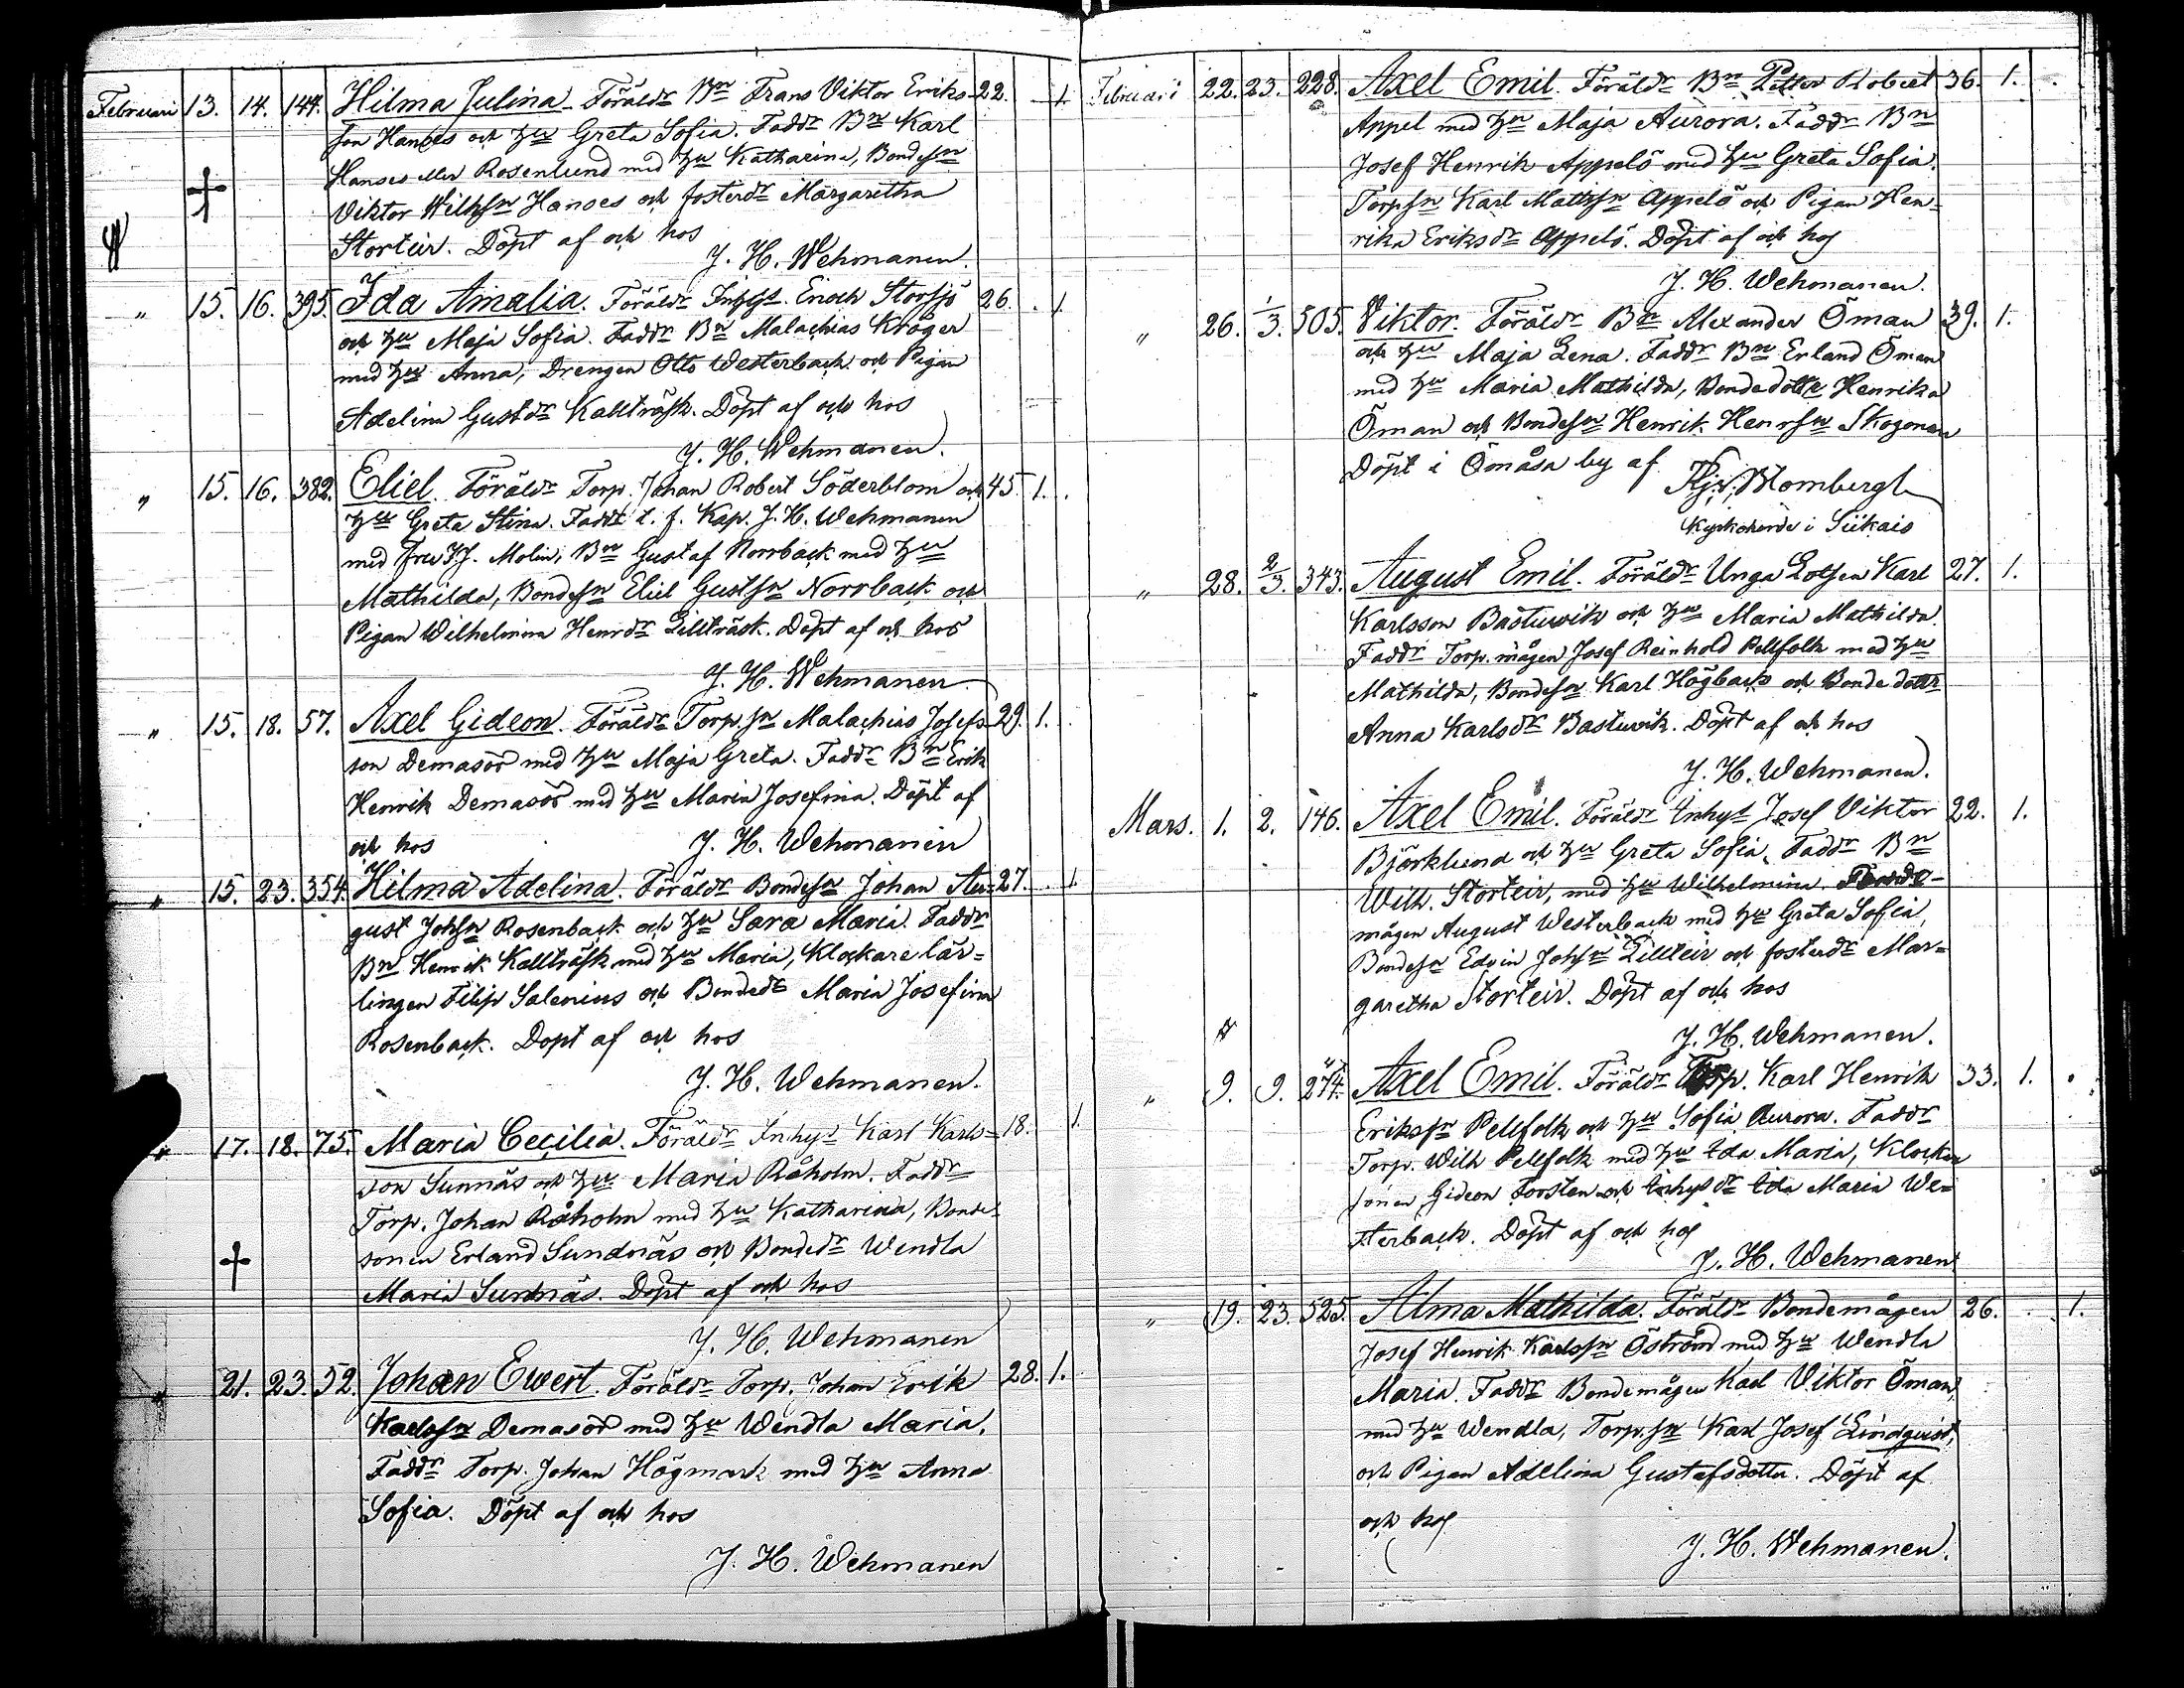 Februari 13. 14. 144. Hilma Julina. Föräldr Bn Frans Viktor Eriks- 22. 1.
son Hanses och hu Greta Sofia. Faddr Bn Karl
Hanses eller Rosenlund med hu Katharina, Bondesn
Viktor Wilhsn Hanses och fosterdr Margaretha
Storteir. Döpt af och hos
J. H. Wehmanen.
" 15. 16. 395. Ida Amalia. Föräldr Inhyst. Enoch Storsjö 26. 1
och hu Maja Sofia. Faddr Bn Malachias Kröger
med hu Anna, Drengen Otto Westerback och Pigan
Adelina Gustdr Kallträsk. Döpt af och hos
J. H. Wehmanen.
" 15. 16. 382. Eliel. Föräldr Torp. Johan Robert Söderblom och 45. 1.
hu Greta Stina. Faddr t. f. Kap. J. H. Wehmanen
med Fru Molin, Bn Gustaf Norrback med hu
Mathilda, Bondesn Eliel Gustsn Norrback och
Pigan Wilhelmina Henrdr Lillträsk. Döpt af och hos
J. H. Wehmanen.
" 15. 18. 57. Axel Gideon. Föräldr Torp.sn Malachias Josefs- 29. 1.
son Demasör med hu Maja Greta. Faddr Bn Erik
Henrik Demasör med hu Maria Josefina. Döpt af
och hos J. H. Wehmanen
" 15. 23. 354. Hilma Adelina. Föräldr Bondesn Johan Au- 27. 1
gust Johsn Rosenback och hu Sara Maria. Faddr
Bn Henrik Kallträsk med hu Maria, Klockare lär-
lingen Filip Salenius och Bondedr Maria Josefina
Rosenback. Dopt af och hos
J. H. Wehmanen.
" 17. 18. 75. Maria Cecilia. Föräldr Inhyst Karl Karls- 18. 1.
son Sunnäs och hu Maria Råholm. Faddr
Torp. Johan Råholm med hu Katharina, Bonde-
sonen Erland Sundnäs och Bondedr Wendla
Maria Sundnäs. Döpt af och hos
J. H. Wehmanen
" 21. 23. 52. Johan Ewert. Föräldr Torp. Johan Erik 28. 1.
Karlssn Demasör med hu Wendla Maria.
Faddr Torp. Johan Högmark med hu Anna
Sofia. Döpt af och hos
J. H. Wehmanen
Februari 22. 23. 228. Axel Emil. Föräldr Bn Petter Robert 36. 1.
Appel med hu Maja Aurora. Faddr Bn
Josef Henrik Appelö med hu Greta Sofia.
Torpsn Karl Mattssn Appelö och Pigan Hen-
rika Eriksdr Appelö. Döpt af och hos
J. H. Wehmanen.
" 26. 1/3. 505. Viktor. Föräldr Bn Alexander Öman 39. 1.
och hu Maja Lena. Faddr Bn Erland Öman
med hu Maria Mathilda, Bondedottr Henrika
Öman och Bondesn Henrik Henrsn Skogman
Döpt i Ömåsa by af Blombergh
Kyrkoherde i Siikais
" 28. 2/3. 343. August Emil. Föräldr Unga Lotsen Karl 27. 1.
Karlsson Bastuwik och hu Maria Mathilda.
Faddr Torp. mågen Josef Reinhold Pellfolk med hu
Mathilda, Bondesn Karl Högback och Bonde dottr
Anna Karlsdr Bastuwik. Döpt af och hos
J. H. Wehmanen.
Mars. 1. 2. 146. Axel Emil. Föräldr Inhyst Josef Viktor 22. 1.
Björklund och hu Greta Sofia. Faddr Bn
Wilh. Storteir, med hu Wilhelmina.
mågen August Westerback med hu Greta Sofia,
Bondesn Edvin Johsn Lillteir och fosterdr Mar-
garetha Storteir. Döpt af och hos
J. H. Wehmanen.
" 9. 9. 274. Axel Emil. Föräldr Torp. Karl Henrik 33. 1.
Erikssn Pellfolk och hu Sofia Aurora. Faddr
Torp. Wilh Pellfolk med hu Ida Maria, Klockar
sonen Gideon Forsten och Inhysdr Ida Maria We-
sterback. Döpt af och hos
J. H. Wehmanen
" 19. 23. 525. Alma Mathilda. Föräldr Bondemågen 26. 1.
Josef Henrik Karlssn Öströnd med hu Wendla
Maria. Faddr Bondemågen Karl Viktor Öman,
med hu Wendla, Torp.sn Karl Josef Lindqvist,
och Pigan Adelina Gustafsdotter. Döpt af
och hos
J. H. Wehmanen.